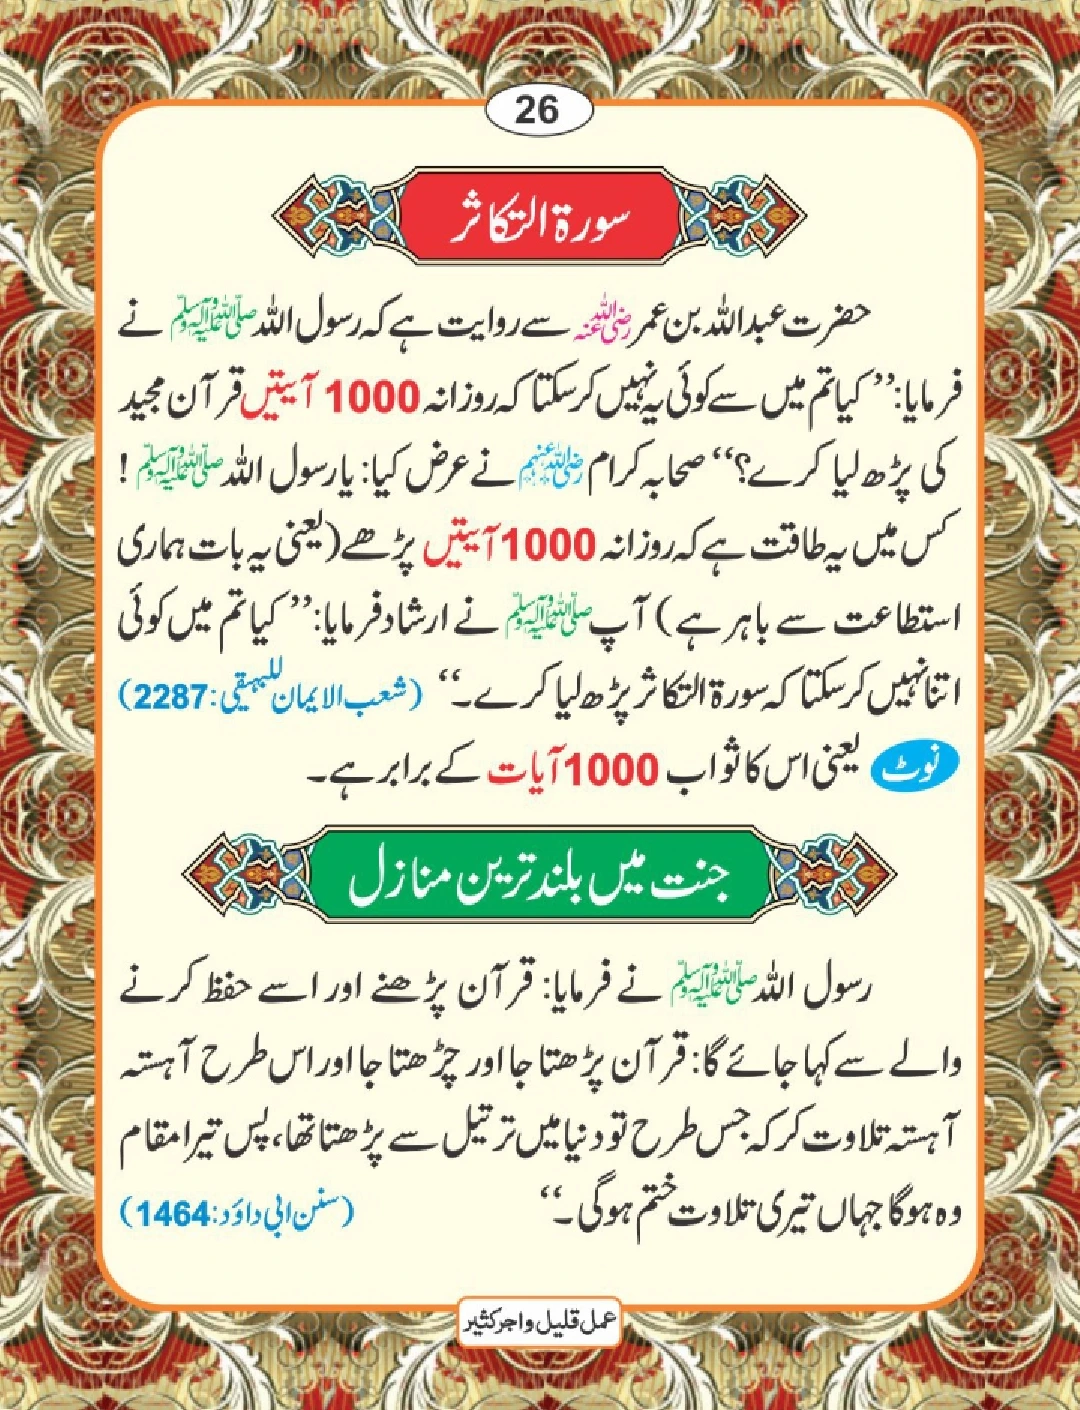 26
سورۃ التکاثر
حضرت عبداللہ بن عمر رضی اللہ عنہ سے روایت ہے کہ رسول اللہ صلی اللہ علیہ وآلہ وسلم نے
فرمایا: ’’کیا تم میں سے کوئی یہ نہیں کرسکتا کہ روزانہ 1000 آیتیں قرآن مجید
کی پڑھ لیا کرے؟‘‘ صحابہ کرام رضی اللہ عنہم نے عرض کیا: یارسول اللہ صلی اللہ علیہ وآلہ وسلم !
کس میں یہ طاقت ہے کہ روزانہ 1000 آیتیں پڑھے (یعنی یہ بات ہماری
استطاعت سے باہر ہے) آپ صلی اللہ علیہ وآلہ وسلم نے ارشاد فرمایا: ’’کیا تم میں کوئی
اتنا نہیں کرسکتا کہ سورۃ التکاثر پڑھ لیا کرے۔‘‘ (شعب الایمان للبہیقی: 2287)
نوٹ یعنی اس کا ثواب 1000 آیات کے برابر ہے۔
جنت میں بلند ترین منازل
رسول اللہ صلی اللہ علیہ وآلہ وسلم نے فرمایا: قرآن پڑھنے اور اسے حفظ کرنے
والے سے کہا جائے گا: قرآن پڑھتا جا اور چڑھتا جا اور اس طرح آہستہ
آہستہ تلاوت کر کہ جس طرح تو دنیا میں ترتیل سے پڑھتا تھا، پس تیرا مقام
وہ ہوگا جہاں تیری تلاوت ختم ہوگی۔‘‘ (سنن ابی داؤد: 1464)
عمل قلیل و اجر کثیر